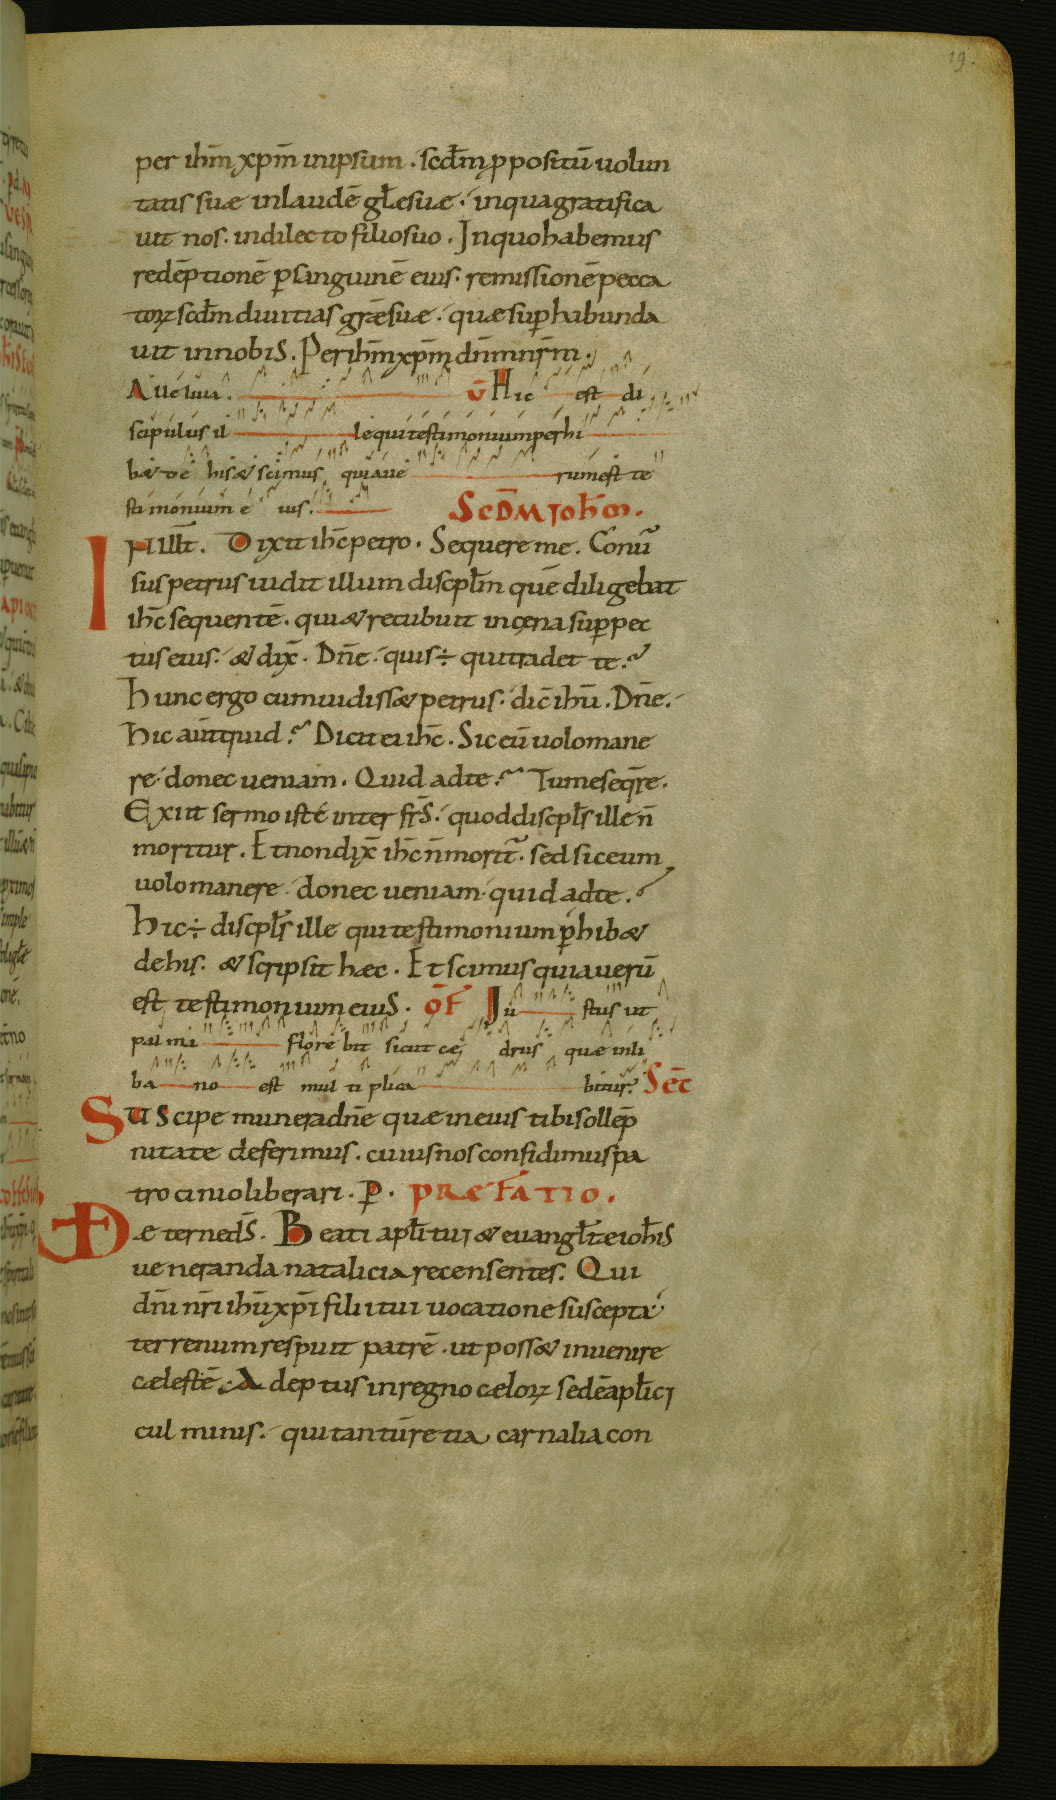 19.
per ihm̄ xpm̄ inipsum . scdm̄ ꝓpositū uolun
tatis suæ inlaudē glęsuæ . inquagratifica
uit nos . indilecto filiosuo . Inquohabemus
redēptionē ꝑsanguinē eius . remissionē pecca
toꝝ scdm̄ diuitias grǣsuæ . quæ suꝑhabunda
uit innobis . Perihm̄xpm̄ dnm̄nrm̄ .
Alleluia . v̄ Hic est di
scipulus il lequitestimoniumperhi
bæ de his & scimus quiaue rum est te
stimonium e ius . Scd̄m Ioh̄m .
In illt̄ . Dixit ihc̄ petro . Sequere me . Conu̅
sus petrus uidit illum discpłm quē diligebat
ihc̄ sequentē . qui & recubuit incęna suꝑpec
tus eius . & dix̄ . Dn̄e . quis ÷ quitradet te ?
Hunc ergo cumuidiss& petrus . dic̄ ihū . Dn̄e .
hic aūtquid ? Dicit ei ihc̄ . Sic eū uolomane
re . donec ueniam . Quid adte ? Tumeseqr̄e .
Exiit sermo iste inter frs̄ . quoddiscpłs ille n̄
moritur . Etnondix̄ ihc̄ n̄morit̄ . sed siceum
uolomanere . donec ueniam . quid adte . ?
Hic ÷ discpłs ille quitestimonium ꝑhib&
dehis . & scripsit hæc . Et scimus quiauerū
est testimonium eius . OF̄ Iu stus ut
pal ma flore bit sicut ce drus quæ inli
ba no est mul ti plica bitur . Sec̄
Suscipe muneradn̄e quæ ineius tibisollēp
nitate deferimus . cuius nos confidimus pa
trocinioliberari . ꝑ . PRÆFATIO .
Æterneds̄ . Beati apłi tui & euangłtæiohis̄
ueneranda natalicia recensentes . Qui
dnī nrī ihūxpī filii tui uocatione suscepta
terrenum respuit patrē . ut poss& inuenire
cælestē . Adeptus inregno cæloꝝ sedēapłici
culminis . quitantū retia carnalia con